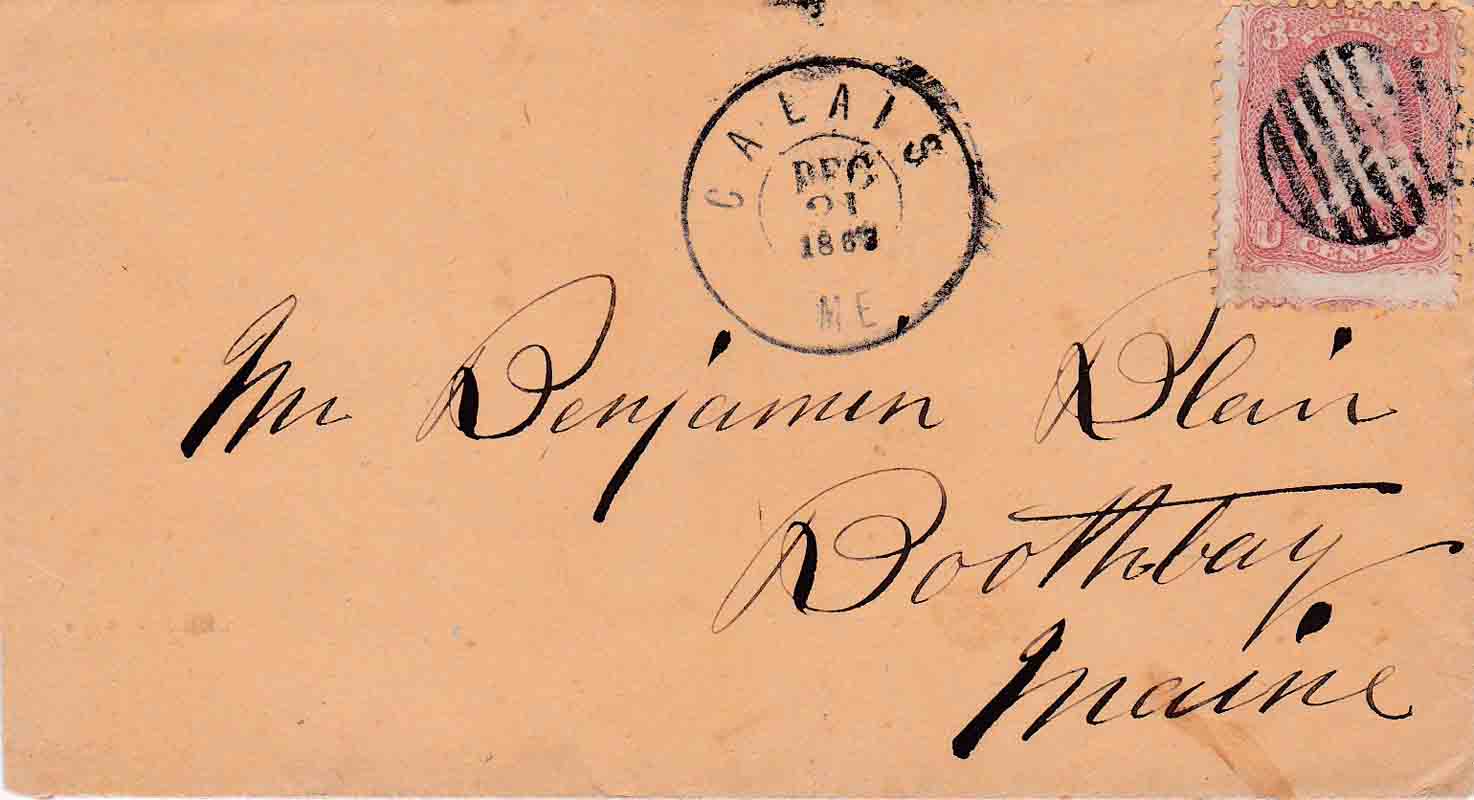 3 U.S. 3
POSTAGE
U CENTS S
CALAIS
DEC
21
ME
Mr Benjamin Blair
Boothbay
Maine